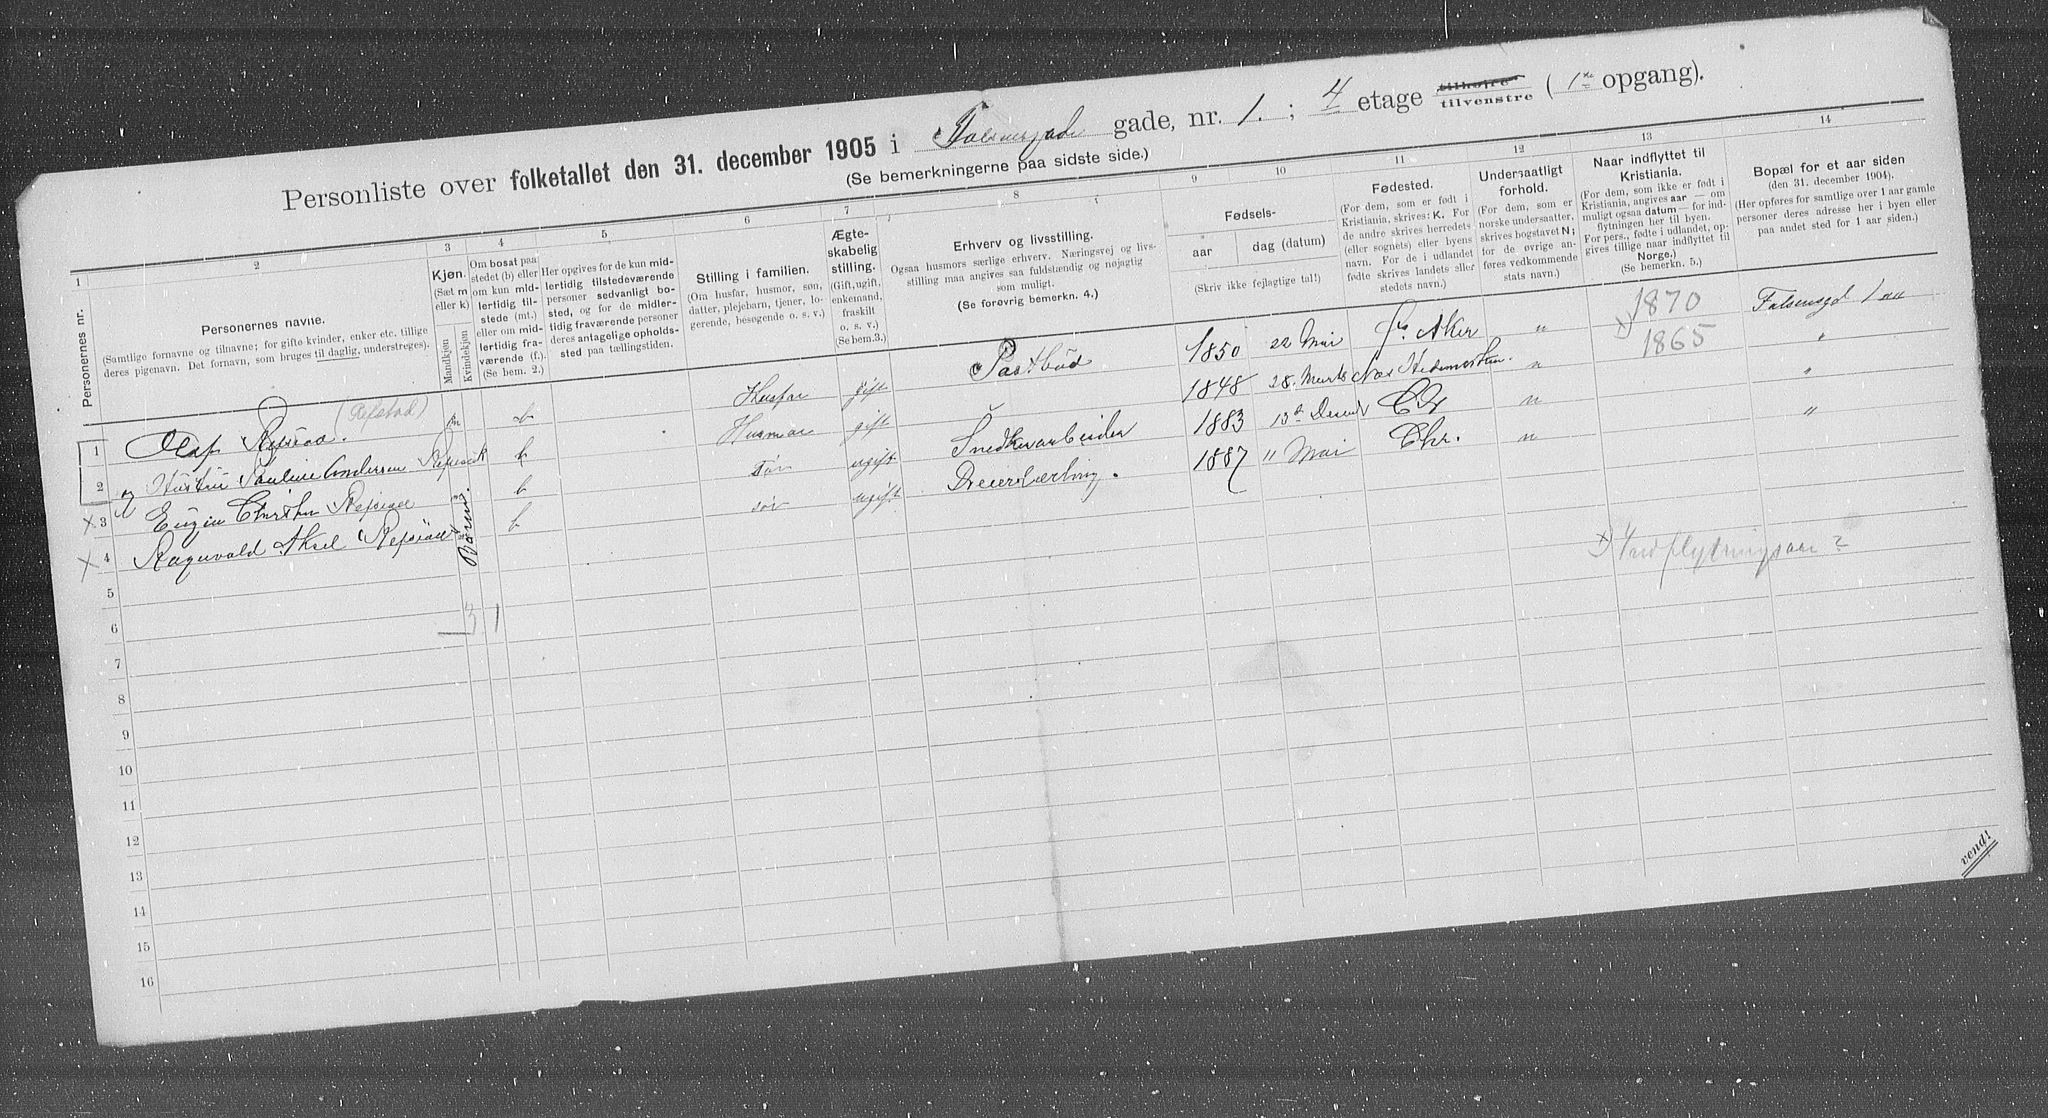 Personliste over folketallet den 31. december 1905 i Falsensgade gade, nr. 1. ; 4 etage tilhøjre tilvenstre ( 1ste opgang).
(Se bemerkningerne paa sidste side.)
1 2 3 4 5 6 7 8 9 10 11 12 13 14
Personernes nr.
Personernes navne.
(Samtlige fornavne og tilnavne; for gifte kvinder, enker etc. tillige
deres pigenavn. Det fornavn, som bruges til daglig, understreges).
Kjøn.
(Sæt m
eller k)
Mandkjøn
Kvindekjøn
Om bosat paa
stedet (b) eller
om kun mid-
lertidig til-
stede (mt.)
eller om mid-
lertidig fra-
værende (f.).
(Se bem. 2.)
Her opgives for de kun mid-
lertidig tilstedeværende
personer sedvanlig bo-
sted, og for de midler-
tidig fraværende personer
deres antagelige opholds-
sted paa tællingstiden.
Stilling i familien.
(Om husfar, husmor, søn,
datter, plejebarn, tjener, lo-
gerende, besøgende o. s. v.)
Ægte-
skabelig
stilling.
(Gift, ugift,
enkemand,
fraskilt
o. s. v.)
(Se bem.3.)
Erhverv og livsstilling.
Ogsaa husmors særlige erhverv. Næringsvej og livs-
stilling maa angives saa fuldstændig og nøjagtig
som muligt.
(Se forøvrig bemerkn. 4.)
Fødsels-
aar
dag (datum)
(Skriv ikke fejlagtige tal!)
Fødested.
(For dem, som er født i
Kristiania, skrives: K. For
de andre skrives herredets
(eller sognets) eller byens
navn. For de i udlandet
fødte skrives landets eller
stedets navn.)
Undersaatligt
forhold.
(For dem, som er
norske undersaatter,
skrives bogstavet N;
for de øvrige an-
føres vedkommende
stats navn.)
Naar indflyttet til
Kristiania.
(For dem, som ikke er født i
Kristiania, angives aar — om
muligt ogsaa datum — for ind-
flytningen her til byen.
For pers., fødte i udlandet, op-
gives tillige naar indflyttet til
Norge.)
(Se bemerkn. 5.)
Bopæl for et aar siden
(den 31. december 1904).
(Her opføres for samtlige over 1 aar gamle
personer deres adresse her i byen eller
paa andet sted for 1 aar siden.)
(Refstad)
1 Olaf m b Husfar gift Postbud 1850 22 Mai Aker n 1870 Falsensgd 1
2 Pauline Andersen b Husmor gift 1848 28. Marts Hedemarken n 1865 "
3 Eugen b søn ugift Snedkerarbeider 1883 13 Decembr Chr n "
4 Ragnvald Aksel b søn ugift Dreierlærling. 1887 11 Mai Chr. n "
5
Indflytningsaar?
6 3 1
7
8
9
10
11
12
13
14
15
16
vend!